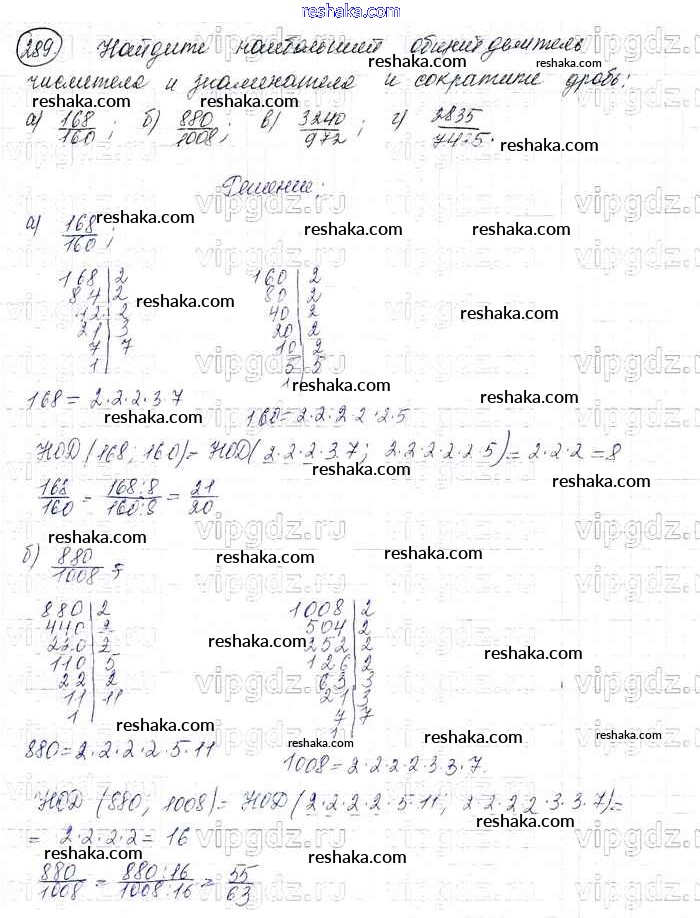 reshaka.com
289. Найдите наибольший общий делитель
числителя и знаменателя и сократите дробь:
а) 168/160; б) 880/1008; в) 3240/972; г) 2835/7425.
Решение:
а) 168/160;
168 | 2    160 | 2
84 | 2    80 | 2
42 | 2    40 | 2
21 | 3    20 | 2
7 | 7    10 | 2
1 |    5 | 5
1
168 = 2·2·2·3·7
160 = 2·2·2·2·2·5
НОД (168; 160) = НОД (2·2·2·3·7; 2·2·2·2·2·5) = 2·2·2 = 8
168/160 = 168:8/160:8 = 21/20
б) 880/1008;
880 | 2    1008 | 2
440 | 2    504 | 2
220 | 2    252 | 2
110 | 5    126 | 2
22 | 2    63 | 3
11 | 11    21 | 3
1 |    7 | 7
1
880 = 2·2·2·2·5·11
1008 = 2·2·2·2·3·3·7.
НОД (880; 1008) = НОД (2·2·2·2·5·11; 2·2·2·2·3·3·7) =
= 2·2·2·2 = 16
880/1008 = 880:16/1008:16 = 55/63
vipgdz.ru